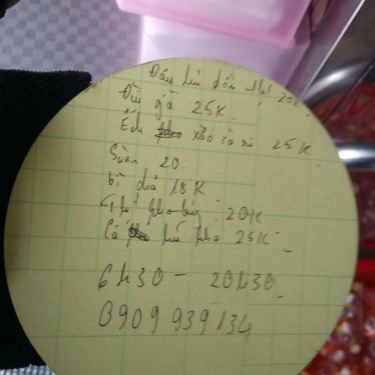 Đậu hủ dồn thịt 20K
Đùi gà 25K
Ếch xào cà ri 25K
Sườn 20
Bì chả 18K
Thịt kho 20K
Cá kho 25K
6h30 - 20h30
0909 939 134